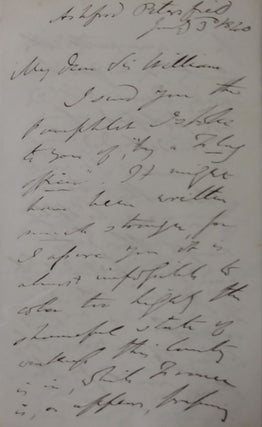 Ashford Petersfield
My Dear Sir William
I send you the
Pamphlet I spoke
to you of, "by a Flag
Officer". It might
have been written
much stronger, for
I assure you it is
almost impossible to
color too highly the
shameful state of
weakness this Country
is in, while France
is, or appears,